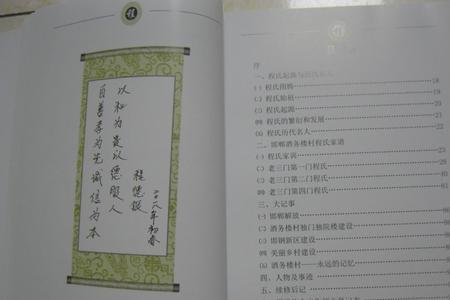 百善孝为先诚信为本
以和为贵以德服人
二〇一八年初春
程
序
㈠ 程氏图腾 18
㈡ 程氏始祖 19
㈢ 程氏起源 20
㈣ 程氏的繁衍和发展 21
㈤ 程氏历代名人 22
二、邯郸酒务楼村程氏家谱
㈠ 程氏家训 23
㈡ 老三门第一门程氏
㈢ 老三门第二门程氏
㈣ 老三门第四门程氏 61
三、大记事
㈠ 邯郸解放
㈡ 酒务楼村独门独院楼建设
㈢ 邯钢新区建设
㈣ 美丽乡村建设
㈤ 酒务楼村——永远的记忆
四、人物及事迹
五、续修后记